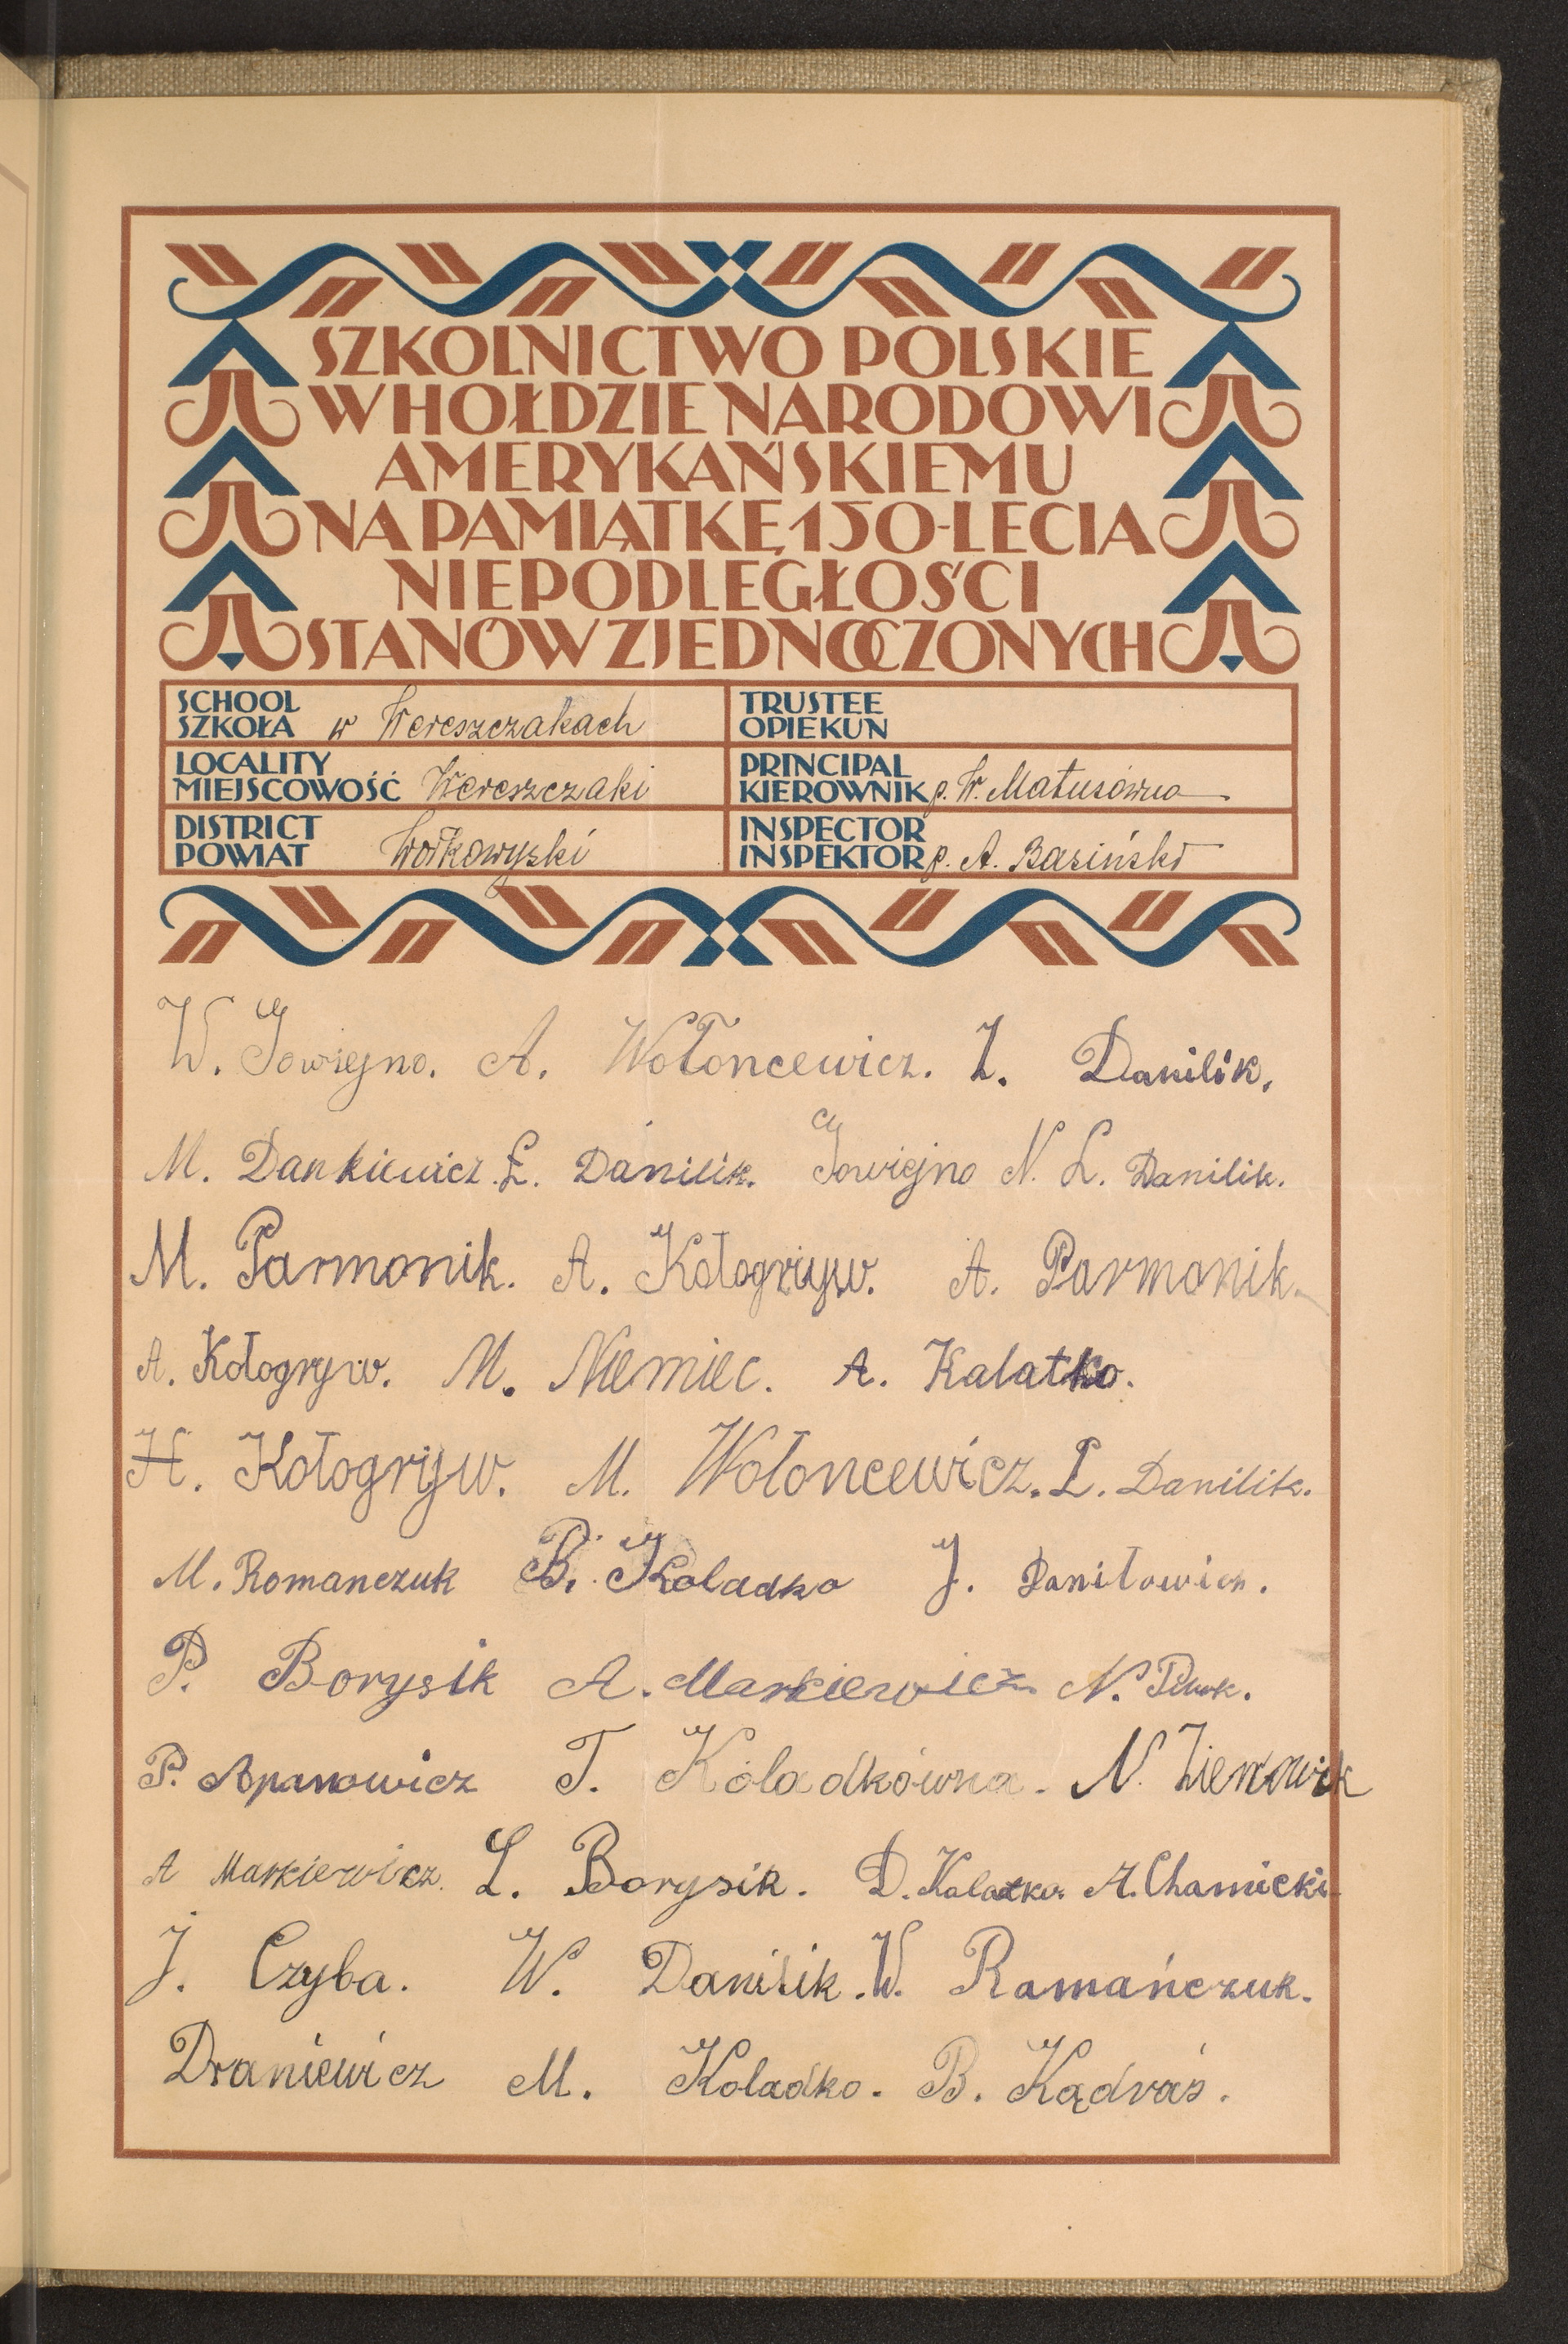 SZKOLNICTWO POLSKIE
W HOŁDZIE NARODOWI
AMERYKAŃSKIEMU
NA PAMIĄTKĘ 150-LECIA
NIEPODLEGŁOŚCI
STANÓW ZJEDNOCZONYCH
SCHOOL
SZKOŁA w Wereszczakach
TRUSTEE
OPIEKUN
LOCALITY
MIEJSCOWOŚĆ Wereszczaki
PRINCIPAL
KIEROWNIK p. W. Matusówna
DISTRICT
POWIAT Wołkowyski
INSPECTOR
INSPEKTOR p. A. Basiński
W. Jowiejno. A. Wołoncewicz. Z. Danilik.
M. Dankiewicz. Ł. Danilik. Jowiejno N. L. Danilik.
M. Parmonik. A. Kołogryjw. A. Parmonik.
A. Kołogryw. M. Niemiec. A. Kalatko.
H. Kołogryjw. M. Wołoncewicz. L. Danilik.
M. Romanczuk B. Koladko J. Daniłowicz.
P. Borysik A. Markiewicz N.
P. Apanowicz T. Koladkówna. N. Zienowik
A Markiewicz. L. Borysik. D. Kalatko. A. Chamicki
J. Czyba. W. Danilik. W. Ramańczuk.
Draniewicz M. Koladko. B. Kądraś.